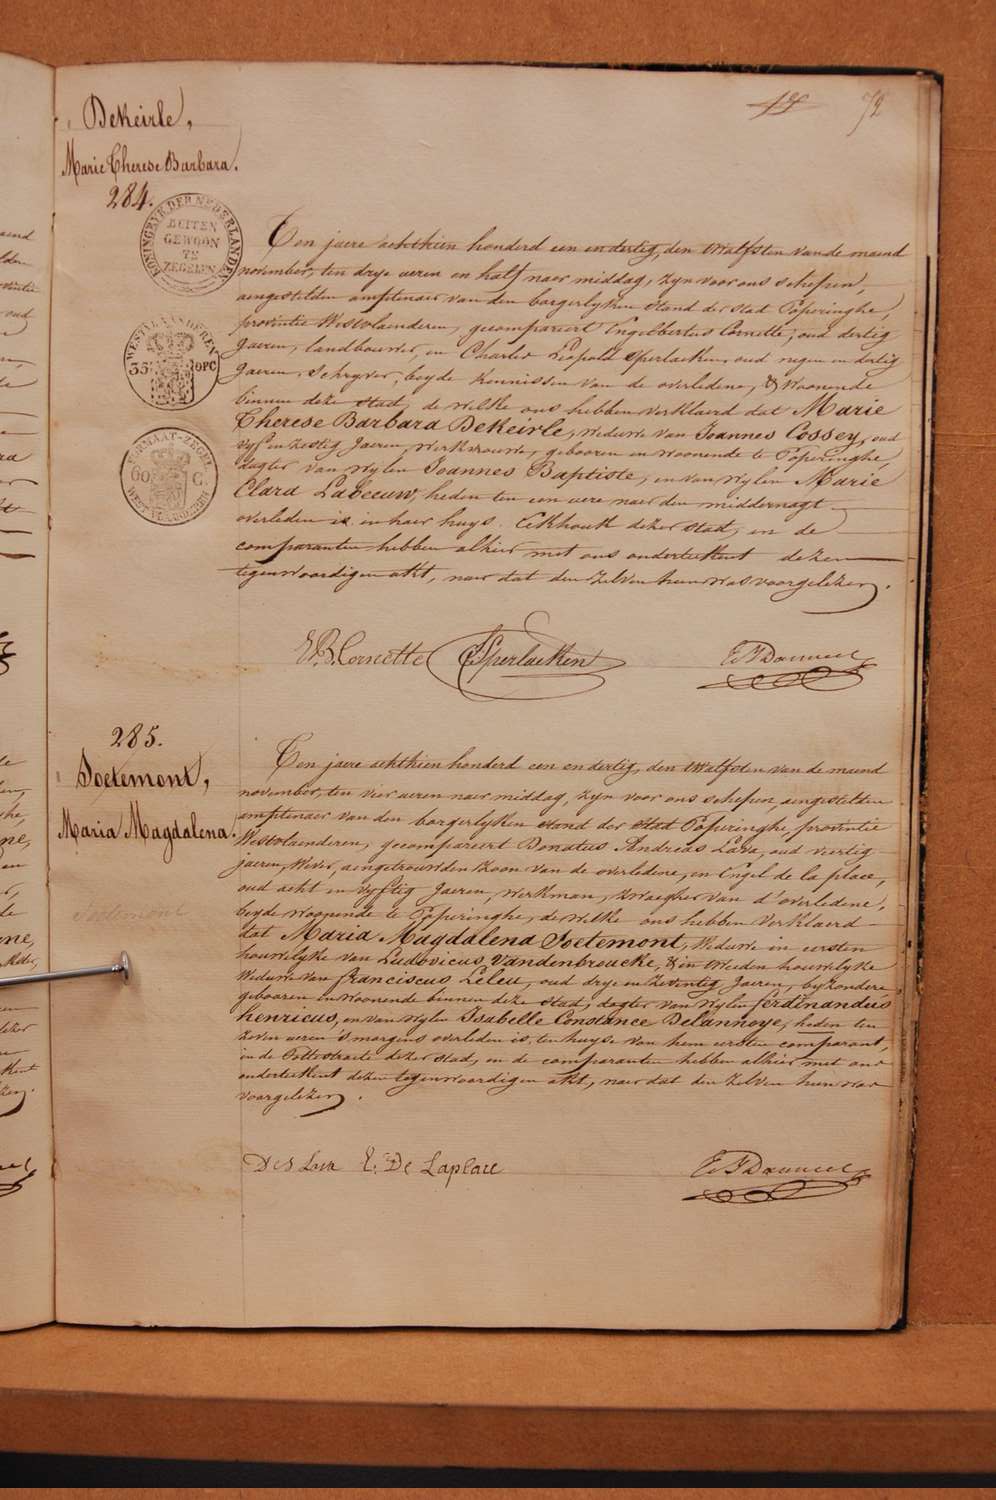 72
DeKeirle,
Marie Therese Barbara.
284.
KONINGRYK DER NEDERLANDEN
BUITEN
GEWOON
TE
ZEGELEN
WESTVLAANDEREN
35 OPC
FORMAAT-ZEGEL
60 C.
WESTVLAANDEREN
Ten jaere achthien honderd een en dertig, den twalfsten van de maend
november, ten drye ueren en half naer middag, zyn voor ons schepen,
aengestelden amptenaer van den borgerlyken stand der stad Poperinghe,
provintie Westvlaenderen, gecompareert Engelbertus Cornette, oud dertig
jaeren, landbouwer, en Charles Leopold Sperlaeken, oud negen en dertig
jaeren, schryver, beyde kennissen van de overledene, & woonende
binnen deze stad, de welke ons hebben verklaerd dat Marie
Therese Barbara DeKeirle, weduwe van Joannes Cossey, oud
vyf en zestig jaeren, werkvrouwe, gebooren en woonende te Poperinghe,
dogter van wylen Joannes Baptiste, en van wylen Marie
Clara Labeeuw, heden ten een uere naer den middernagt
overleden is in haer huys Eekhoutt dezer stad, en de
comparanten hebben alhier met ons onderteekent dezen
tegenwoordigen akt, naer dat den zelven hun was voorgelezen.
E.B. Cornette CSperlaeken
285.
Soetemont,
Maria Magdalena.
Soetemont
Ten jaere achthien honderd een en dertig, den twalfsten van de maend
november, ten vier ueren naer middag, zyn voor ons schepen, aengestelden
amptenaer van den borgerlyken stand der stad Poperinghe, provintie
Westvlaenderen, gecompareert Donatus Andreas Lava, oud veertig
jaeren, wever, aengetrouwden zoon van de overledene, en Engel de la place,
oud acht en vyftig jaeren, werkman, zwaegher van d'overledene,
beyde woonende te Poperinghe, de welke ons hebben verklaerd
dat Maria Magdalena Soetemont, weduwe in eersten
houwelyke van Ludovicus Vandenbroucke, & in tweeden houwelyke
weduwe van franciscus Leleu, oud drye en zeventig jaeren, byzondere
gebooren en woonende binnen deze stad, dogter van wylen ferdinandus
henricus, en van wylen Isabelle Constance Delannoye, heden ten
zeven ueren 's morgens overleden is, ten huyse van hem eersten comparant,
in de Pottestraete dezer stad, en de comparanten hebben alhier met ons
onderteekent dezen tegenwoordigen akt, naer dat den zelven hun was
voorgelezen.
E. De Laplace